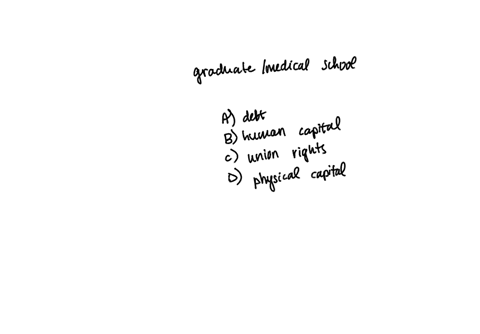 graduate/medical school
A) debt
B) human capital
C) union rights
D) physical capital